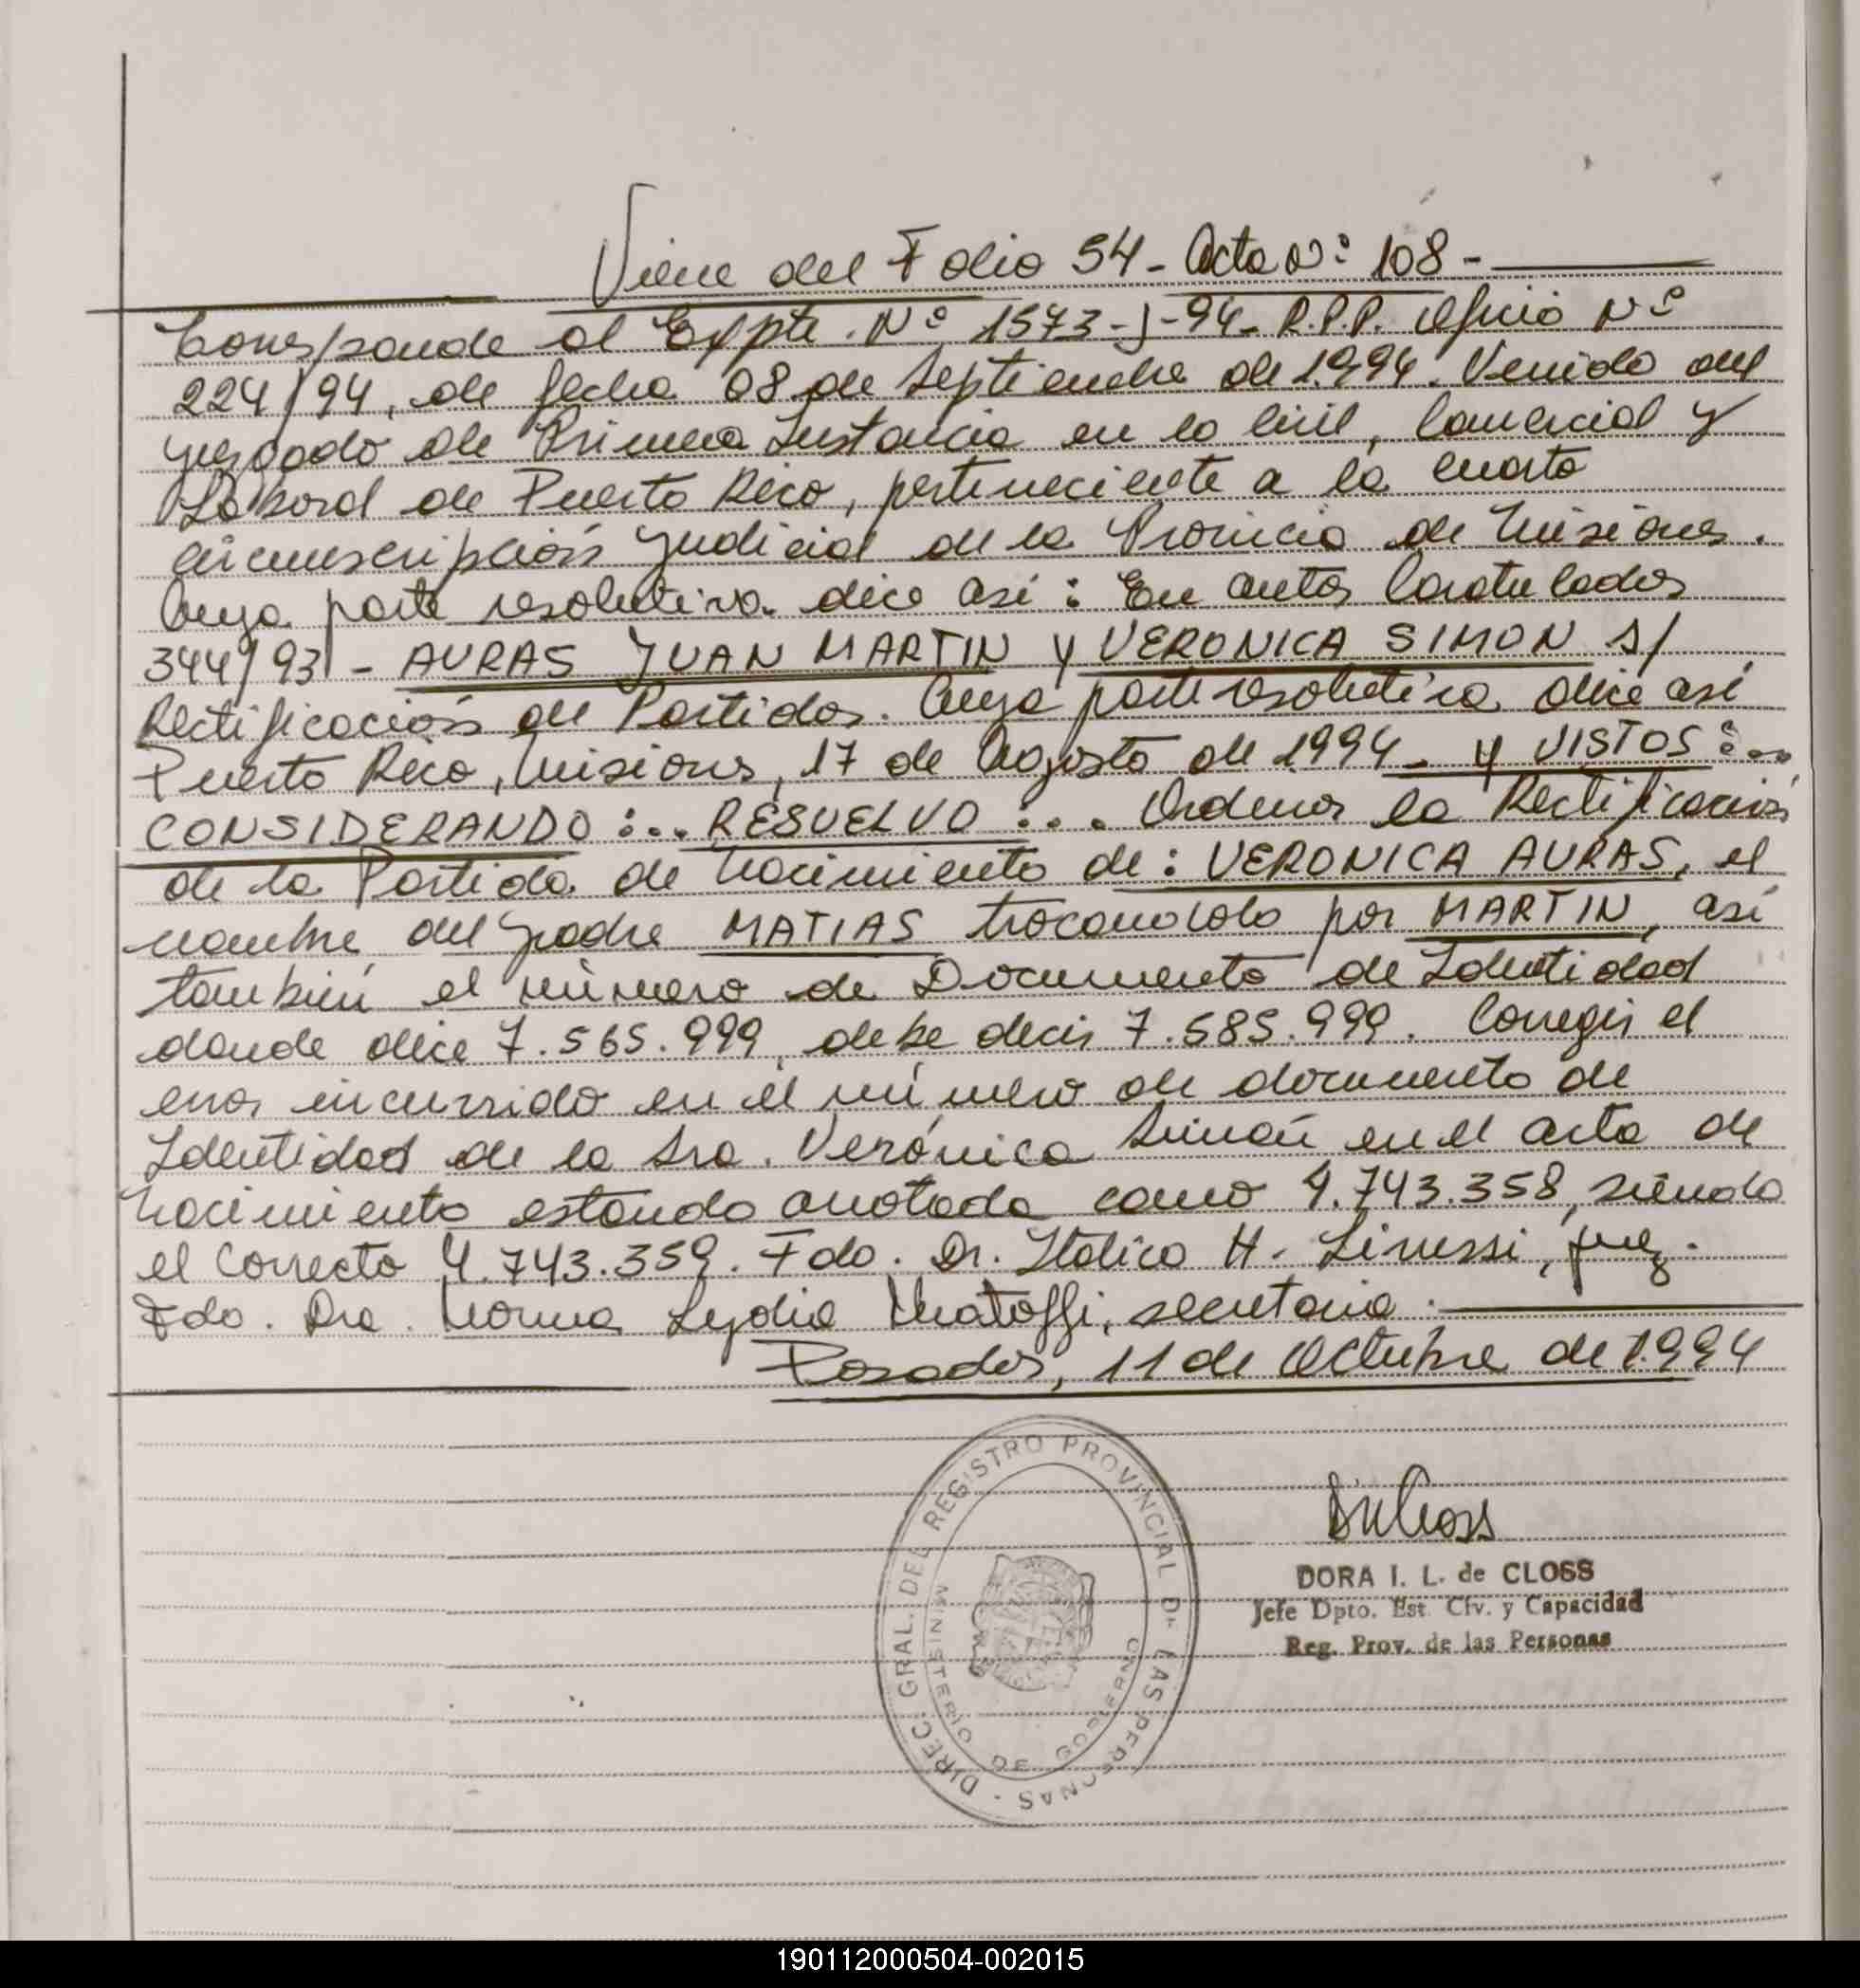 Viene del Folio 54 - Acta Nº 108 -
Corresponde al Expte. Nº 1573-J-94- R.P.P. Oficio Nº
224/94, de fecha 08 de Septiembre de 1.994. Venido del
juzgado de Primera Instancia en lo Civil, Comercial y
Laboral de Puerto Rico, perteneciente a la cuarta
circunscripción Judicial de la Provincia de Misiones.
Cuya parte resolutiva dice así: En autos Caratulados
344/93 - AURAS JUAN MARTIN y VERONICA SIMON s/
Rectificación de Partidas. Cuya parte resolutiva dice así
Puerto Rico, Misiones, 17 de Agosto de 1994 - Y VISTOS:..
CONSIDERANDO:... RESUELVO:... Ordenar la Rectificación
de la Partida de nacimiento de: VERONICA AURAS, el
nombre del padre MATIAS trocandolo por MARTIN, así
también el número de Documento de Identidad
donde dice 7.565.999, debe decir 7.585.999. Corregir el
error incurrido en el número de documento de
Identidad de la Sra. Verónica Simón en el acta de
nacimiento estando anotada como 4.743.358, siendo
el Correcto 4.743.359. Fdo. Dr. Italico H. Linessi, juez.
Fdo. Dra. Norma Lydia Matoffi, secretaria.
Posadas, 11 de Octubre de 1.994
DIREC. GRAL. DEL REGISTRO PROVINCIAL DE LAS PERSONAS
MINISTERIO DE GOBIERNO
DORA I. L. de CLOSS
Jefe Dpto. Est. Civ. y Capacidad
Reg. Prov. de las Personas
190112000504-002015